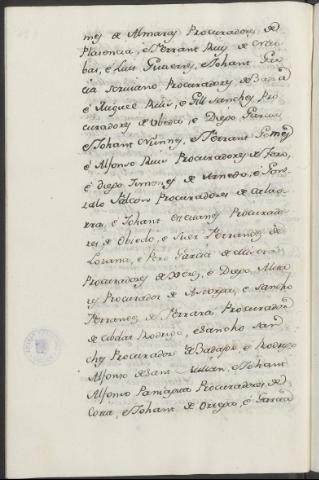 mez de Almaraz Procuradores de
Plasencia, e Ferrant Ruiz de
bas, e Luis Gutierrez, e Johant Gar
cia scrivano Procuradores de Baeza
e Miguel Ruiz, e Gill Sanchez Pro
curadores de Ubeda, e Diego Garcia
e Johant Nunnez, e Ferrant Gomez
e Alfonso Ruiz Procuradores de Toro,
e Diego Ximenez de Arnedo, e Gon
zalo Falcon Procuradores de Calaho
rra, e Johant Estevanez Procurado
res de Oviedo, e Suer Ferrandez de
Lozana, e Pero Garcia de
Procuradores de Xerez, e Diego Alva
rez Procurador de Astorga, e Sancho
Ferrandez de Ferrara Procurador
de Cibdat Rodrigo, e Sancho San
chez Procurador de Badajoz, e Rodrigo
Alfonso de Sant Julian, e Johant
Alfonso Paniagua Procuradores de
Coria, e Johant de Orego, e Garcia